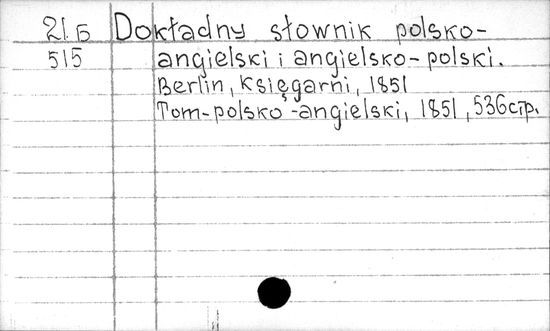 21.Б Dokładny słownik polsko-
515 angielski i angielsko-polski.
Berlin, Księgarni, 1851
Tom-polsko-angielski, 1851, 536 стр.